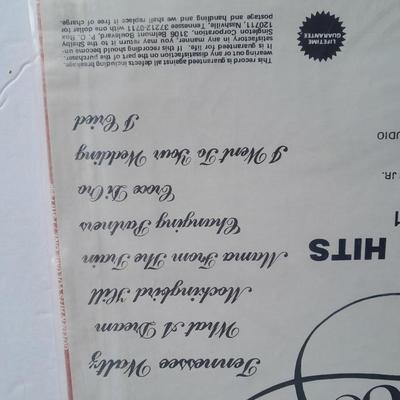 HITS
1
JR.
UDIO
Tennessee Waltz
What A Dream
Mockingbird Hill
Mama From The Train
Changing Partners
Croce Di Oro
I Went To Your Wedding
I Cried
LIFETIME
GUARANTEE
This record is guaranteed against all defects including breakage,
wearing out or any dissatisfaction on the part of the purchaser.
It is guaranteed for life. If this recording should become un-
satisfactory in any manner, you may return it to the Shelby
Singleton Corporation, 3106 Belmont Boulevard, P. O. Box
120711, Nashville, Tennessee 37212-0711 with one dollar for
postage and handling and we shall replace it free of charge.